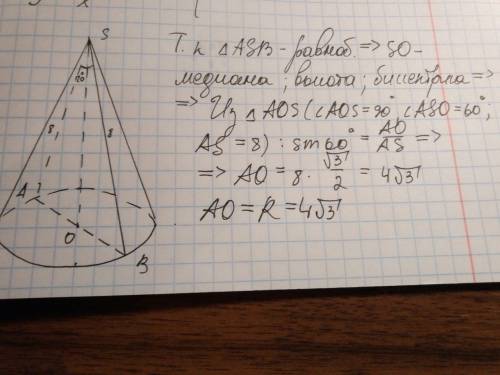 S
Т.к △ASB - равноб. => SO -
медиана; высота; биссектриса =>
=> Из △AOS (∠AOS = 90°, ∠ASO = 60°,
AS = 8) : sin 60° = AO/AS =>
=> AO = 8 · √3/2 = 4√3
AO = R = 4√3
8
8
A
O
B